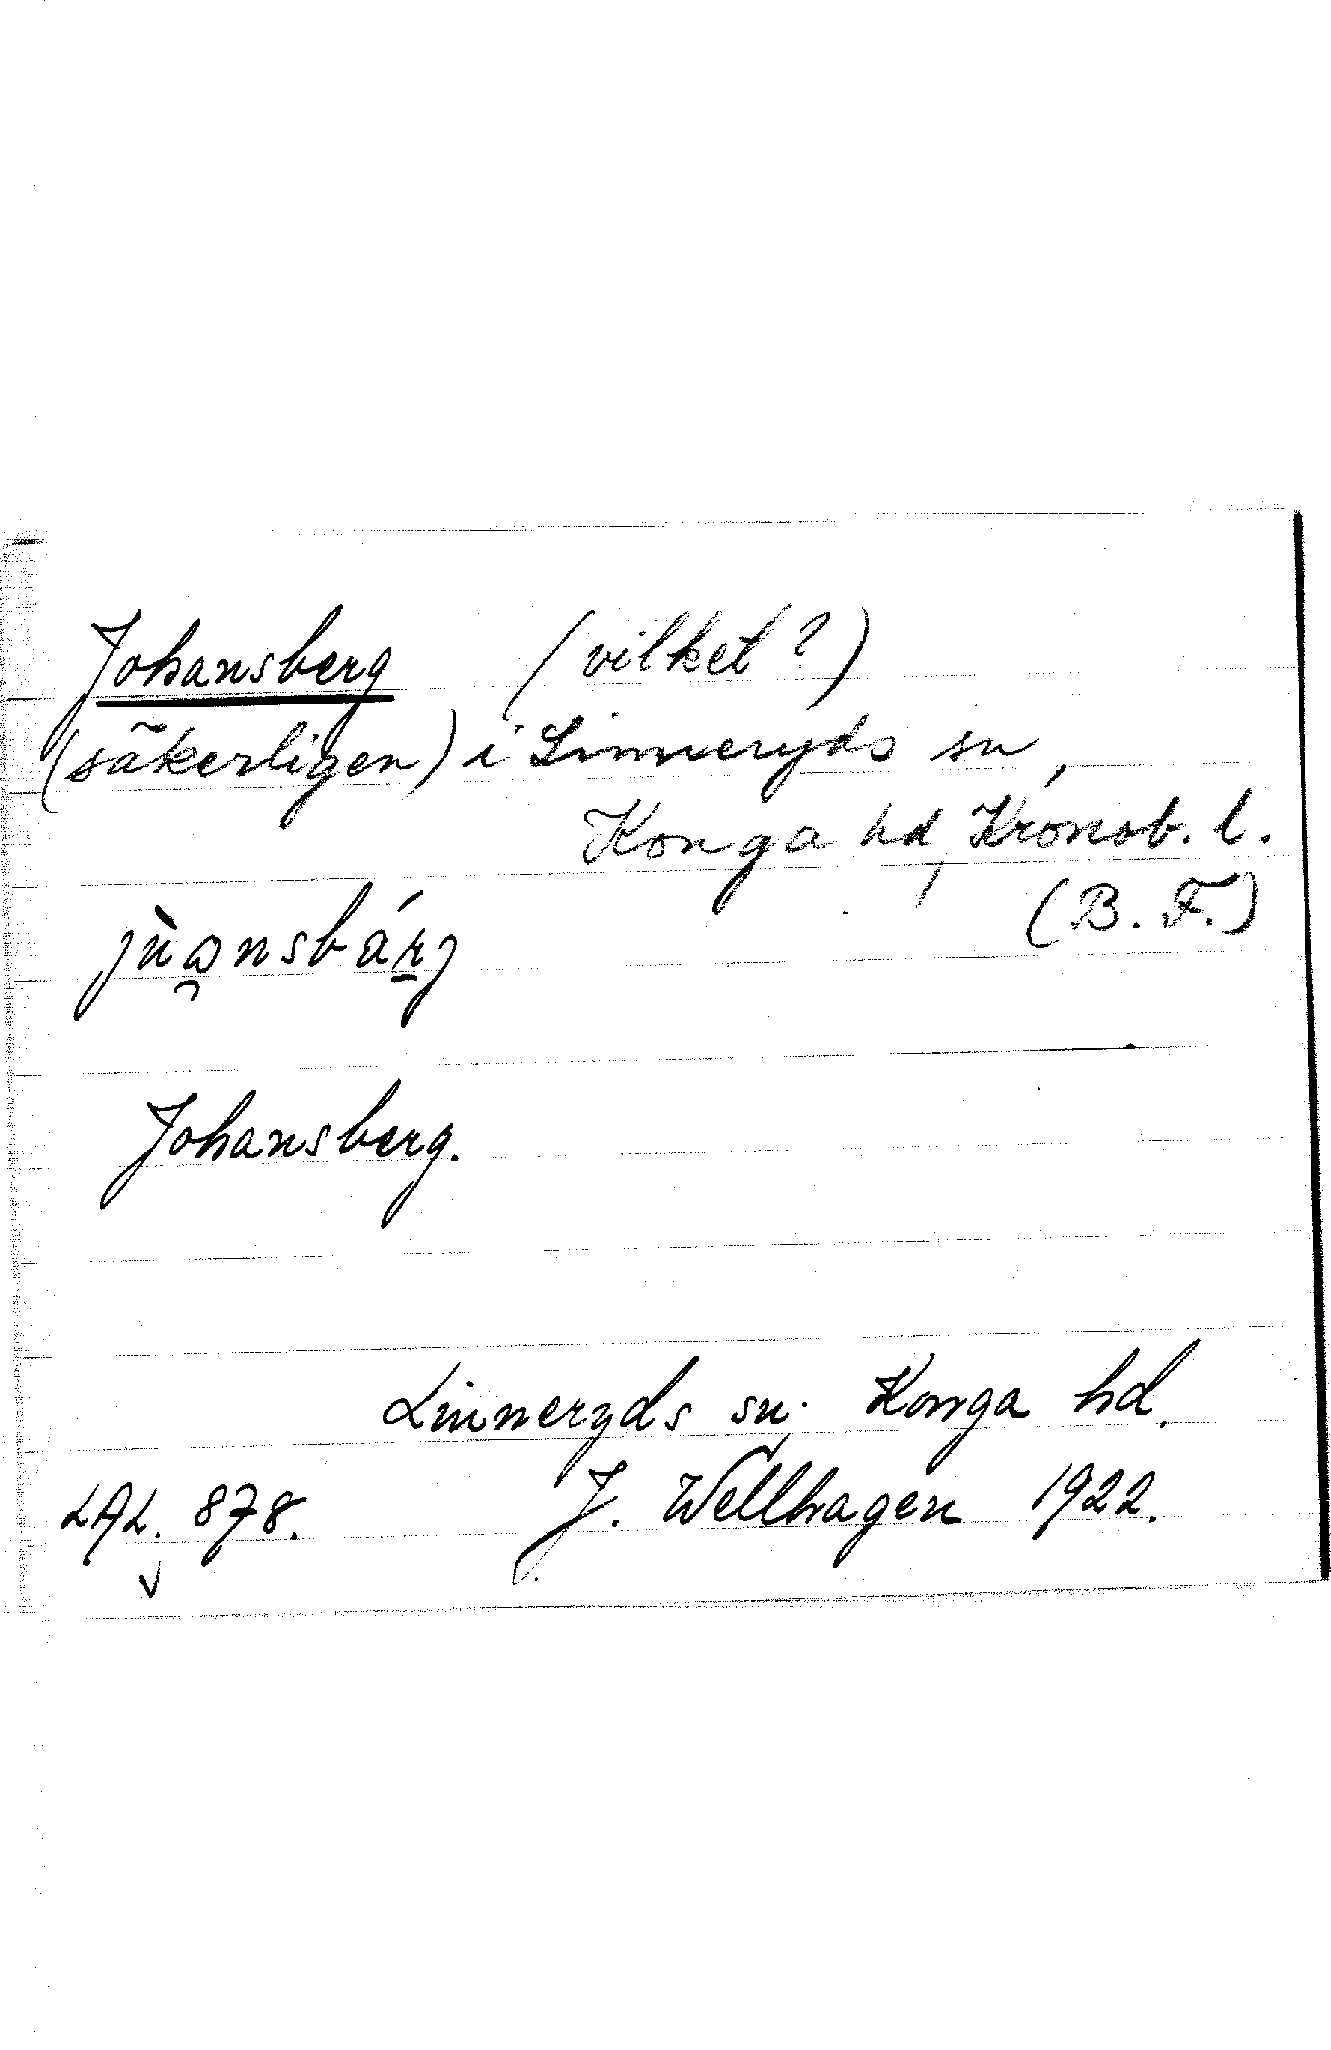 Johansberg (vilket?)
(säkerligen) i Linneryds sn,
Konga hd, Kronob. l.
(B. F.)
jùɷ̯nsbárj
Johansberg.
Linneryds sn. Konga hd.
LAL. 878. J. Wellhagen 1922.